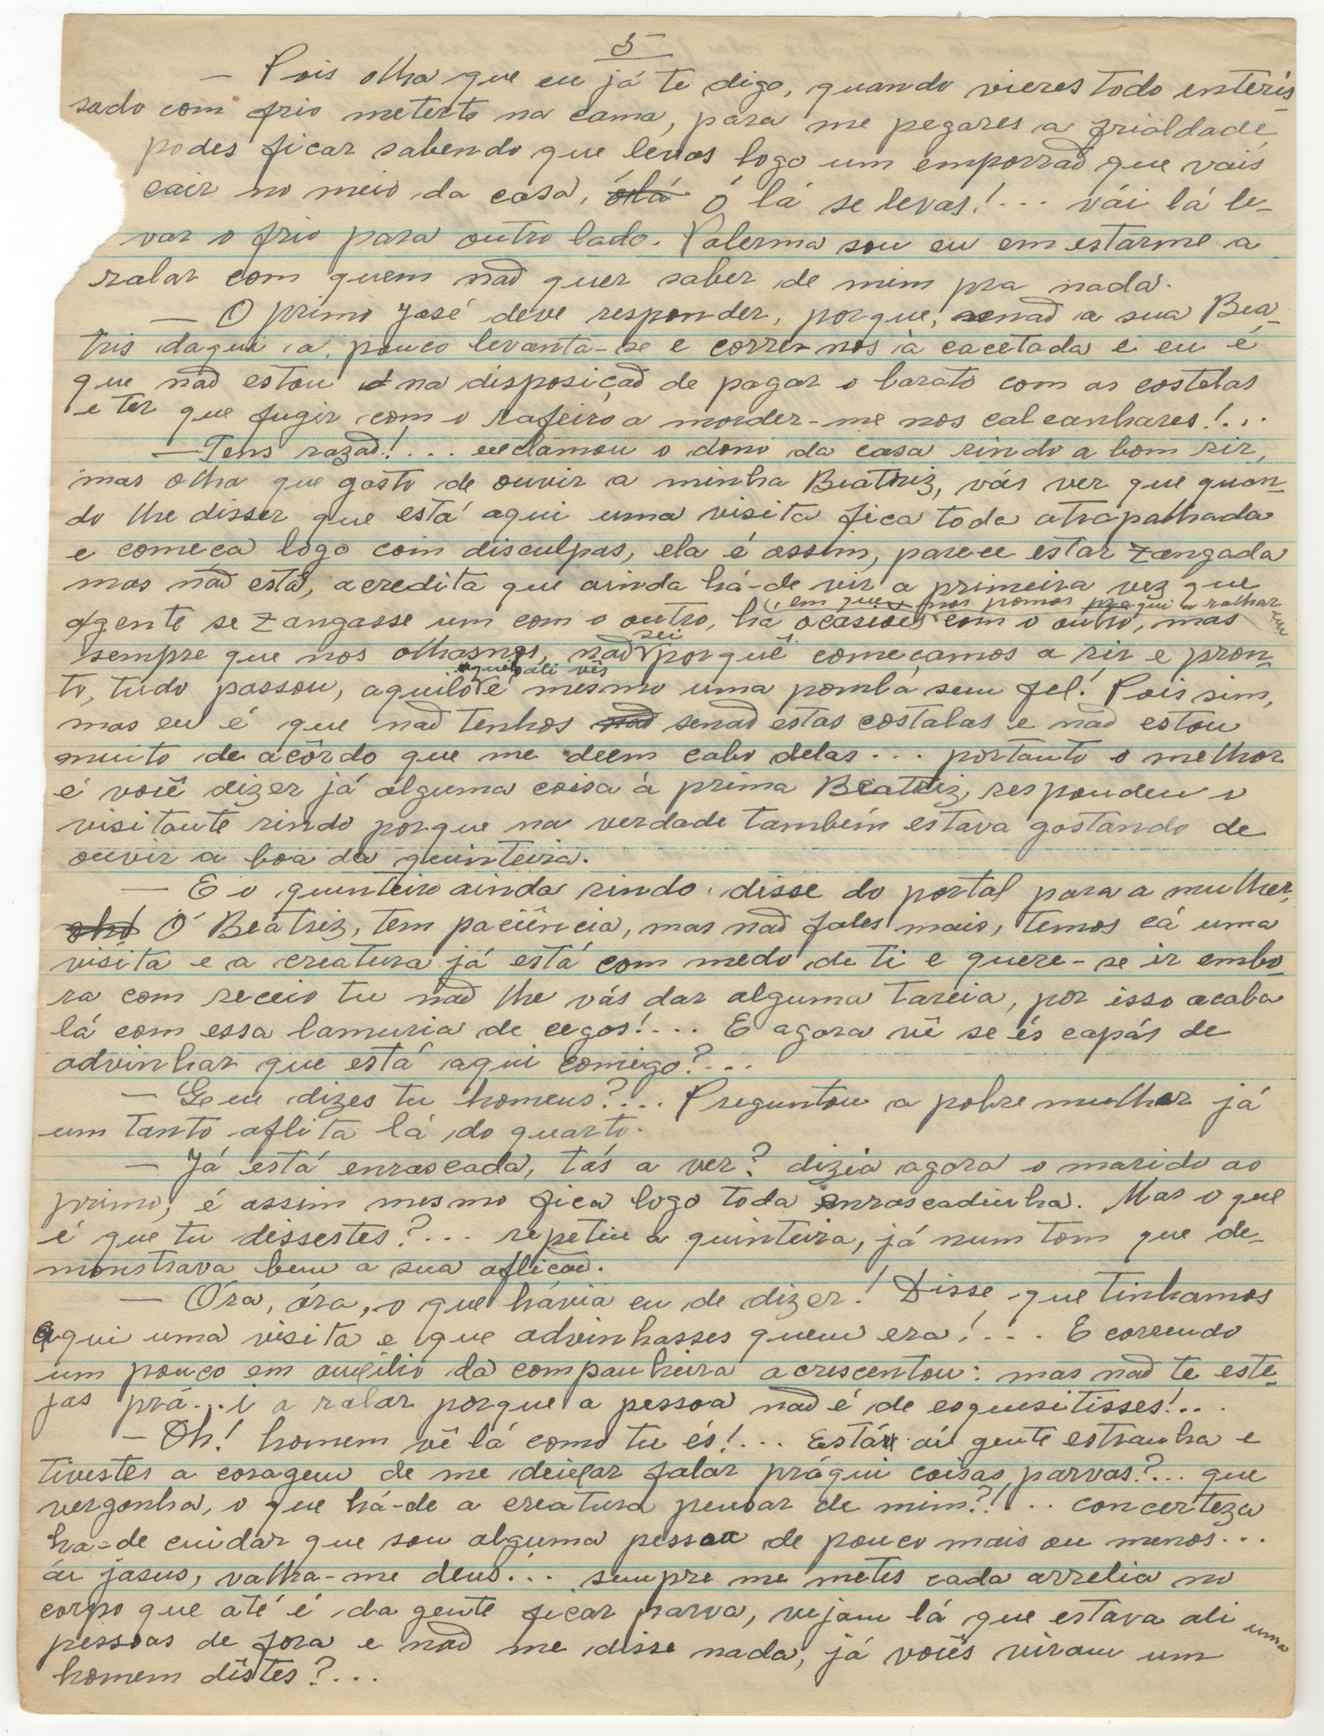 5
— Pois olha que eu já te digo, quando vieres todo enteris-
sado com frio meterte na cama, para me pegares a frialdade
podes ficar sabendo que levas logo um emporrão que vais
cair no meio da casa, ólá Ó lá se levas!... vái lá le-
var o frio para outro lado. Palerma sou eu em estarme a
ralar com quem não quer saber de mim pra nada.
— O primo José deve responder, porque, senão a sua Bea-
tris daqui a pouco levanta-se e corre-nos à cacetada e eu é
que não estou na disposição de pagar o barato com as costelas
e ter que fugir com o rafeiro a morder-me nos calcanhares!...
— Tens razão!... exclamou o dono da casa rindo a bom rir,
mas olha que gosto de ouvir a minha Beatriz, vás ver que quan-
do lhe disser que está aqui uma visita fica toda atrapalhada
e comeca logo com disculpas, ela é assim, parece estar zangada
mas não está, acredita que ainda há-de vir a primeira vez que
em que nos pomos praqui a ralhar
agente se zangasse um com o outro, há ocasiões com o outro, mas
sei
sempre que nos olhasmos, não porquê começamos a rir e pron-
aquela ali vês
to, tudo passou, aquilo é mesmo uma pomba sem fel! Pois sim,
mas eu é que não tenhos não senão estas costalas e não estou
muito de acôrdo que me deem cabo delas... portanto o melhor
é voiê dizer já alguma coisa á prima Beatriz, respondeu o
visitante rindo porque na verdade também estava gostando de
ouvir a boa da quinteira.
— E o quinteiro ainda rindo, disse do portal para a mulher,
oho! Ó Beatriz, tem paciência, mas não fales mais, temos cá uma
visita e a creatura já está com medo de ti e quere-se ir embo-
ra com receio tu não lhe vás dar alguma tareia, por isso acaba
lá com essa lamuria de cegos!... E agora vê se és capás de
advinhar que está aqui comigo?...
— Qeue dizes tu homens?... Preguntou a pobre mulher já
um tanto aflita lá do quarto.
— Já está enrascada, tás a ver? dizia agora o marido ao
primo, é assim mesmo fica logo toda enrascadinha. Mas o que
é que tu dissestes?... repetiu a quinteira, já num tom que de-
monstrava bem a sua aflição.
— Óra, óra, o que hávia eu de dizer! Disse que tinhamos
aqui uma visita e que advinhasses quem era!... E correndo
um pouco em auxilio da companheira acrescentou: mas não te este-
jas prá..i a ralar porque a pessoa não é de esquisitisses!...
— Oh! homem vê lá como tu és!... Está ai gente estranha e
tivestes a coragem de me deixar falar práqui coisas parvas?... que
vergonha, o que há-de a creatura pensar de mim?!... concerteza
ha-de cuidar que sou alguma pessoa de pouco mais ou menos...
ái jasus, valha-me deus!... sempre me metes cada arrelia no
corpo que até é da gente ficar parva, vejam lá que estava ali uma
pessoas de fora e não me disse nada, já voiês viram um
homem dêstes?...